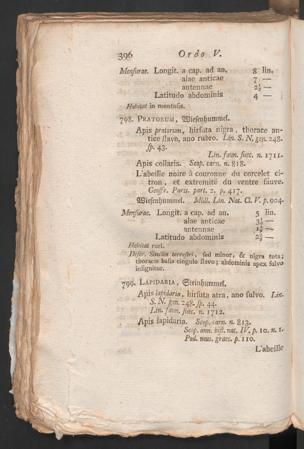 396 Ordo V.
Mensurae. Longit. a cap. ad an. 8 lin.
alae anticae 7 —
antennae 2½ —
Latitudo abdominis 4 —
Habitat in montosis.
798. PRATORUM, Wiesenhummel.
Apis pratorum, hirsuta nigra, thorace an-
tice flavo, ano rubro. Lin. S. N. gen. 248.
sp. 43.
Lin. faun. suec. n. 1711.
Apis collaris. Scop. carn. n. 818.
L'abeille noire à couronne du corcelet ci-
tron, et extremité du ventre fauve.
Geoffr. Paris. part. 2. p. 417.
Wiesenhummel. Müll. Lin. Nat. G. V. p. 904.
Mensurae. Longit. a cap. ad an. 5 lin.
alae anticae
antennae
Latitudo abdominis
Habitat ruri.
Descr. Similis terrestri, sed minor, & nigra tota;
thoracis basis cingulo flavo; abdominis apex fulvo
insignitur.
799. LAPIDARIA, Steinhummel.
Apis lapidaria, hirsuta atra, ano fulvo. Lin.
S. N. gen. 248. sp. 44.
Lin. faun. suec. n. 1712.
Apis lapidaria. Scop. carn. n. 813.
Scop. ann. hist. nat. IV. p. 10. n. 1.
Pod. mus. graec. p. 110.
L'abeille